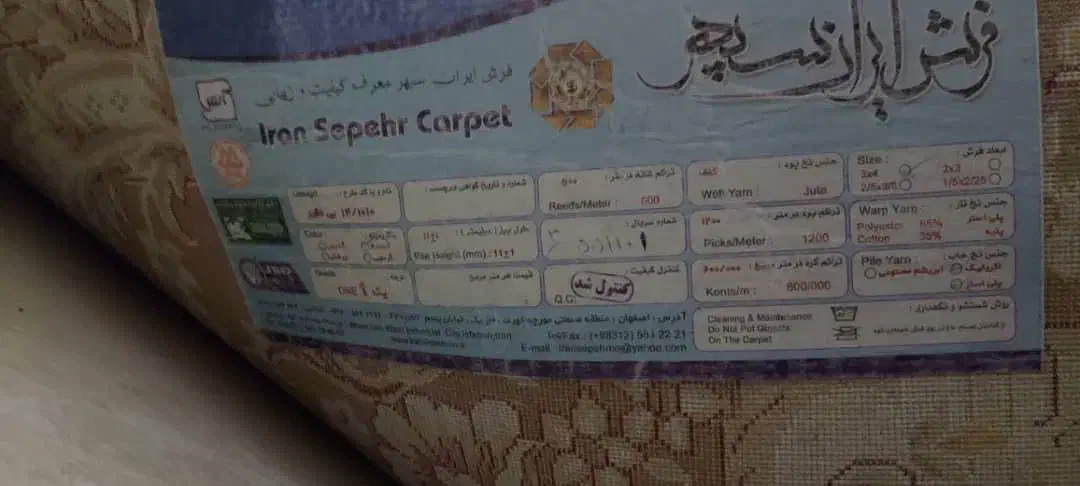 فرش ایران سپهر
فرش ایران سپهر معرف کیفیت و زیبایی
Iran Sepehr Carpet
ابعاد فرش :
Size :
3x4
2x3
2/5x3/5
1/5x2/25
جنس نخ پود :
کنف
Weft Yarn : Jute
تراکم شانه در متر :
Reeds/Meter : 600
شماره و تاریخ گواهی
نام و یا کد طرح :
Design
جنس نخ تار :
Warn Yarn :
پلی استر
Polyester 65%
پنبه
Cotton 35%
تراکم پود در متر :
۱۲۰۰
Picks/Meter : 1200
شماره سریال :
Pile Height (mm) : 11±1
Color :
جنس نخ خاب :
Pile Yarn :
اکرولیک
ابریشم مصنوعی
پلی استر
تراکم گره در متر
Konts/m : 600/000
کنترل کیفیت :
کنترل شد
Q.C:
قیمت هر متر مربع
درجه
Grade
ONE 1 یک
روش شستشو و نگهداری :
Cleaning & Maintenance
Do Not Put Objects
On The Carpet
آدرس : اصفهان ، منطقه صنعتی مورچه خورت ، فاز یک ، خیابان پنجم
Tel/Fax : (+98312) 564 22 21
E-mail : iransepehrco@yahoo.com